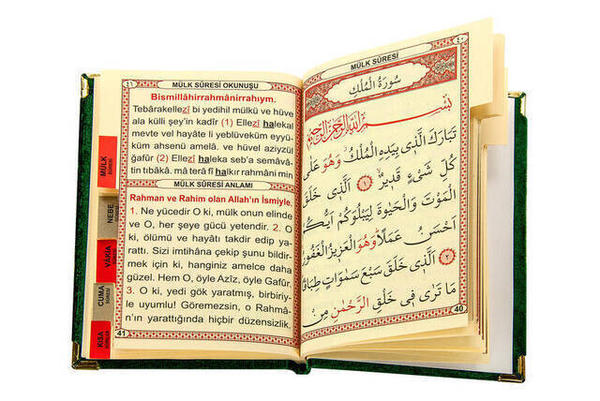 ٤١
MÜLK SÛRESİ OKUNUŞU
Bismillâhirrahmânirrahıym.
Tebârakellezî bi yedihil mülkü ve hüve
ala külli şey'in kadîr (1) Ellezî halekal
mevte vel hayâte li yeblüveküm eyyü-
küm ahsenü amelâ. ve hüvel azîyzül
ğafûr (2) Ellezî haleka seb'a semâvâ-
tin tıbâkâ. mâ terâ fî halkır rahmâni min
MÜLK SÛRESİ ANLAMI
Rahman ve Rahim olan Allah'ın İsmiyle.
1. Ne yücedir O ki, mülk onun elinde
ve O, her şeye gücü yetendir. 2. O
ki, ölümü ve hayâtı takdir edip ya-
rattı. Sizi imtihâna çekip şunu bildir-
mek için ki, hanginiz amelce daha
güzel. Hem O, öyle Azîz, öyle Gafûr.
3. O ki, yedi gök yaratmış, birbiriy-
le uyumlu! Göremezsin, o Rahmâ-
n'ın yarattığında hiçbir düzensizlik.
41
MÜLK
SÛRESİ
NEBE
SÛRESİ
VÂKIA
SÛRESİ
CUMA
SÛRESİ
KISA
٤٠
MÜLK SÛRESİ
سُورَةُ الْمُلْكِ
بِسْمِ اللّٰهِ الرَّحْمٰنِ الرَّحِيمِ
تَبَارَكَ الَّذٖى بِيَدِهِ الْمُلْكُ وَهُوَ عَلٰى
كُلِّ شَىْءٍ قَدٖيرٌ ﴿١﴾ اَلَّذٖى خَلَقَ
الْمَوْتَ وَالْحَيٰوةَ لِيَبْلُوَكُمْ اَيُّكُمْ
اَحْسَنُ عَمَلًا وَهُوَ الْعَزٖيزُ الْغَفُورُ
﴿٢﴾ اَلَّذٖى خَلَقَ سَبْعَ سَمٰوَاتٍ طِبَاقًا
مَا تَرٰى فٖى خَلْقِ الرَّحْمٰنِ مِنْ
40